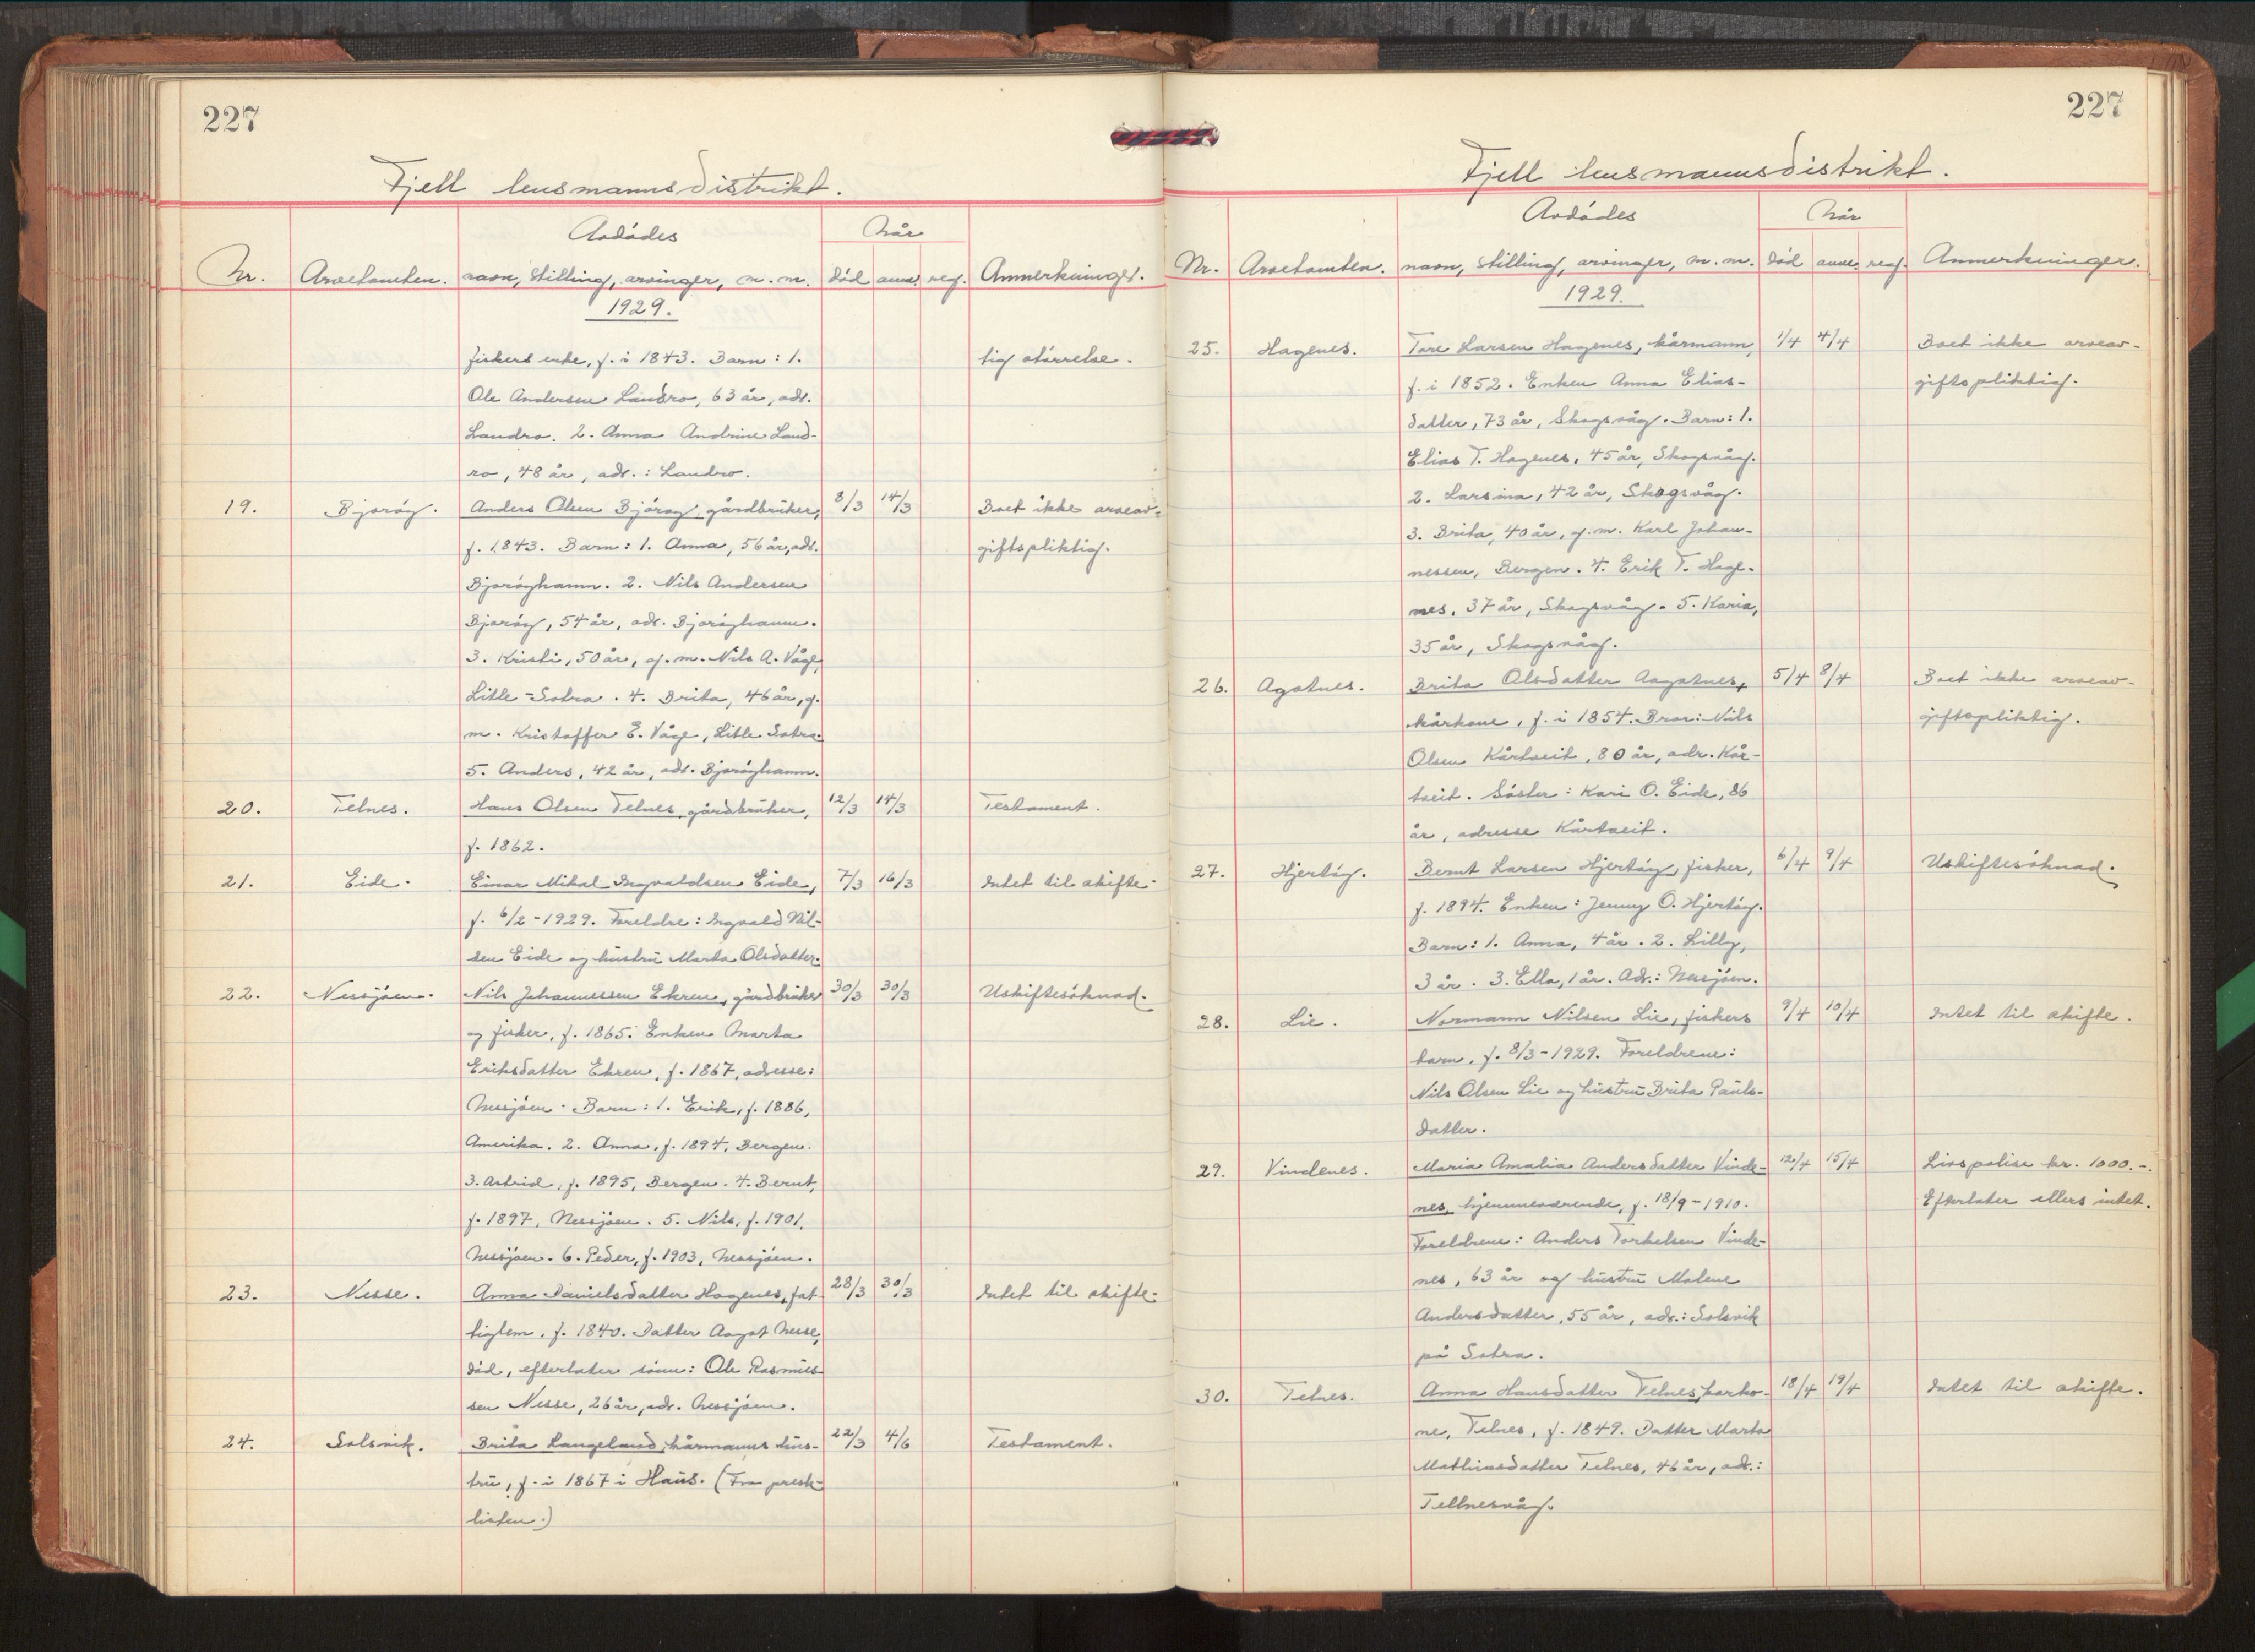 227
Fjell lensmannsdistrikt.
Nr. Arvetomten. Avdødes navn, stilling, arvinger, m. m. Når død anm. reg. Anmerkninger.
1929.
fiskers enke, f. i 1843. Barn: 1. tig størrelse.
Ole Andersen Landro, 63 år, adr.
Landro. 2. Anna Andrine Land-
ro, 48 år, adr.: Landro.
19. Bjorøy. Anders Olsen Bjorøy, gårdbruker, 8/3 14/3 Boet ikke arveav-
f. 1843. Barn: 1. Anna, 56 år, adr. giftspliktig.
Bjorøyhamn. 2. Nils Andersen
Bjorøy, 54 år, adr. Bjorøyhamn.
3. Kristi, 50 år, g. m. Nils A. Våge,
Litle-Sotra. 4. Brita, 46 år, g.
m. Kristoffer E. Våge, Litle Sotra.
5. Anders, 42 år, adr. Bjorøyhamn.
20. Telnes. Hans Olsen Telnes, gårdbruker, 12/3 14/3 Testament.
f. 1862.
21. Eide. Einar Mikal Ingvaldsen Eide, 7/3 16/3 Intet til skifte.
f. 6/2-1929. Foreldre: Ingvald Nil-
sen Eide og hustru Marta Olsdatter.
22. Nessjøen. Nils Johannessen Ekren, gårdbruker 30/3 30/3 Uskiftesøknad.
og fisker, f. 1865. Enken Marta
Eriksdatter Ekren, f. 1867, adresse:
Nessjøen. Barn: 1. Erik, f. 1886,
Amerika. 2. Anna, f. 1894, Bergen.
3. Astrid, f. 1895, Bergen. 4. Bernt,
f. 1897, Nessjøen. 5. Nils, f. 1901,
Nessjøen. 6. Peder, f. 1903, Nessjøen.
23. Nesse. Anna Danielsdatter Hagenes, fat- 28/3 30/3 Intet til skifte.
tiglem, f. 1840. Datter Aagot Nesse,
død, efterlater sønn: Ole Rasmus-
sen Nesse, 26 år, adr. Nessjøen.
24. Solsvik. Brita Langeland, kårmanns hus- 22/3 4/6 Testament.
tru, f. i 1867 i Haus. (Fra preste-
listen.)
227
Fjell lensmannsdistrikt.
Nr. Arvetomten. Avdødes navn, stilling, arvinger, m. m. Når død anm. reg. Anmerkninger.
1929.
25. Hagenes. Tore Larsen Hagenes, kårmann, 1/4 4/4 Boet ikke arveav-
f. i 1852. Enken Anna Elias- giftspliktig.
datter, 73 år, Skogsvåg. Barn: 1.
Elias T. Hagenes, 45 år, Skogsvåg.
2. Larsina, 42 år, Skogsvåg.
3. Brita, 40 år, g. m. Karl Johan-
nessen, Bergen. 4. Erik T. Hage-
nes, 37 år, Skogsvåg. 5. Karia,
35 år, Skogsvåg.
26. Agotnes. Brita Olsdatter Aagotnes, 5/4 8/4 Boet ikke arveav-
kårkone, f. i 1854. Bror: Nils giftspliktig.
Olsen Kårtveit, 80 år, adr. Kår-
tveit. Søster: Kari O. Eide, 86
år, adresse Kårtveit.
27. Hjertøy. Bernt Larsen Hjertøy, fisker, 6/4 9/4 Uskiftesøknad.
f. 1894. Enken: Jenny O. Hjertøy.
Barn: 1. Anna, 4 år. 2. Lilly,
3 år. 3. Ella, 1 år. Adr.: Nessjøen.
28. Lie. Normann Nilsen Lie, fiskers 9/4 10/4 Intet til skifte.
barn, f. 8/3-1929. Foreldrene:
Nils Olsen Lie og hustru Brita Pauls-
datter.
29. Vindenes. Maria Amalia Andersdatter Vinde- 12/4 15/4 Livspolise kr. 1000.-.
nes, hjemmeværende, f. 18/9-1910. Efterlater ellers intet.
Foreldrene: Anders Torkelsen Vinde-
nes, 63 år og hustru Malene
Andersdatter, 55 år, adr.: Solsvik
på Sotra.
30. Telnes. Anna Hansdatter Telnes, kårko- 18/4 19/4 Intet til skifte.
ne, Telnes, f. 1849. Datter Marta
Mathiasdatter Telnes, 46 år, adr.:
Tellnesvåg.